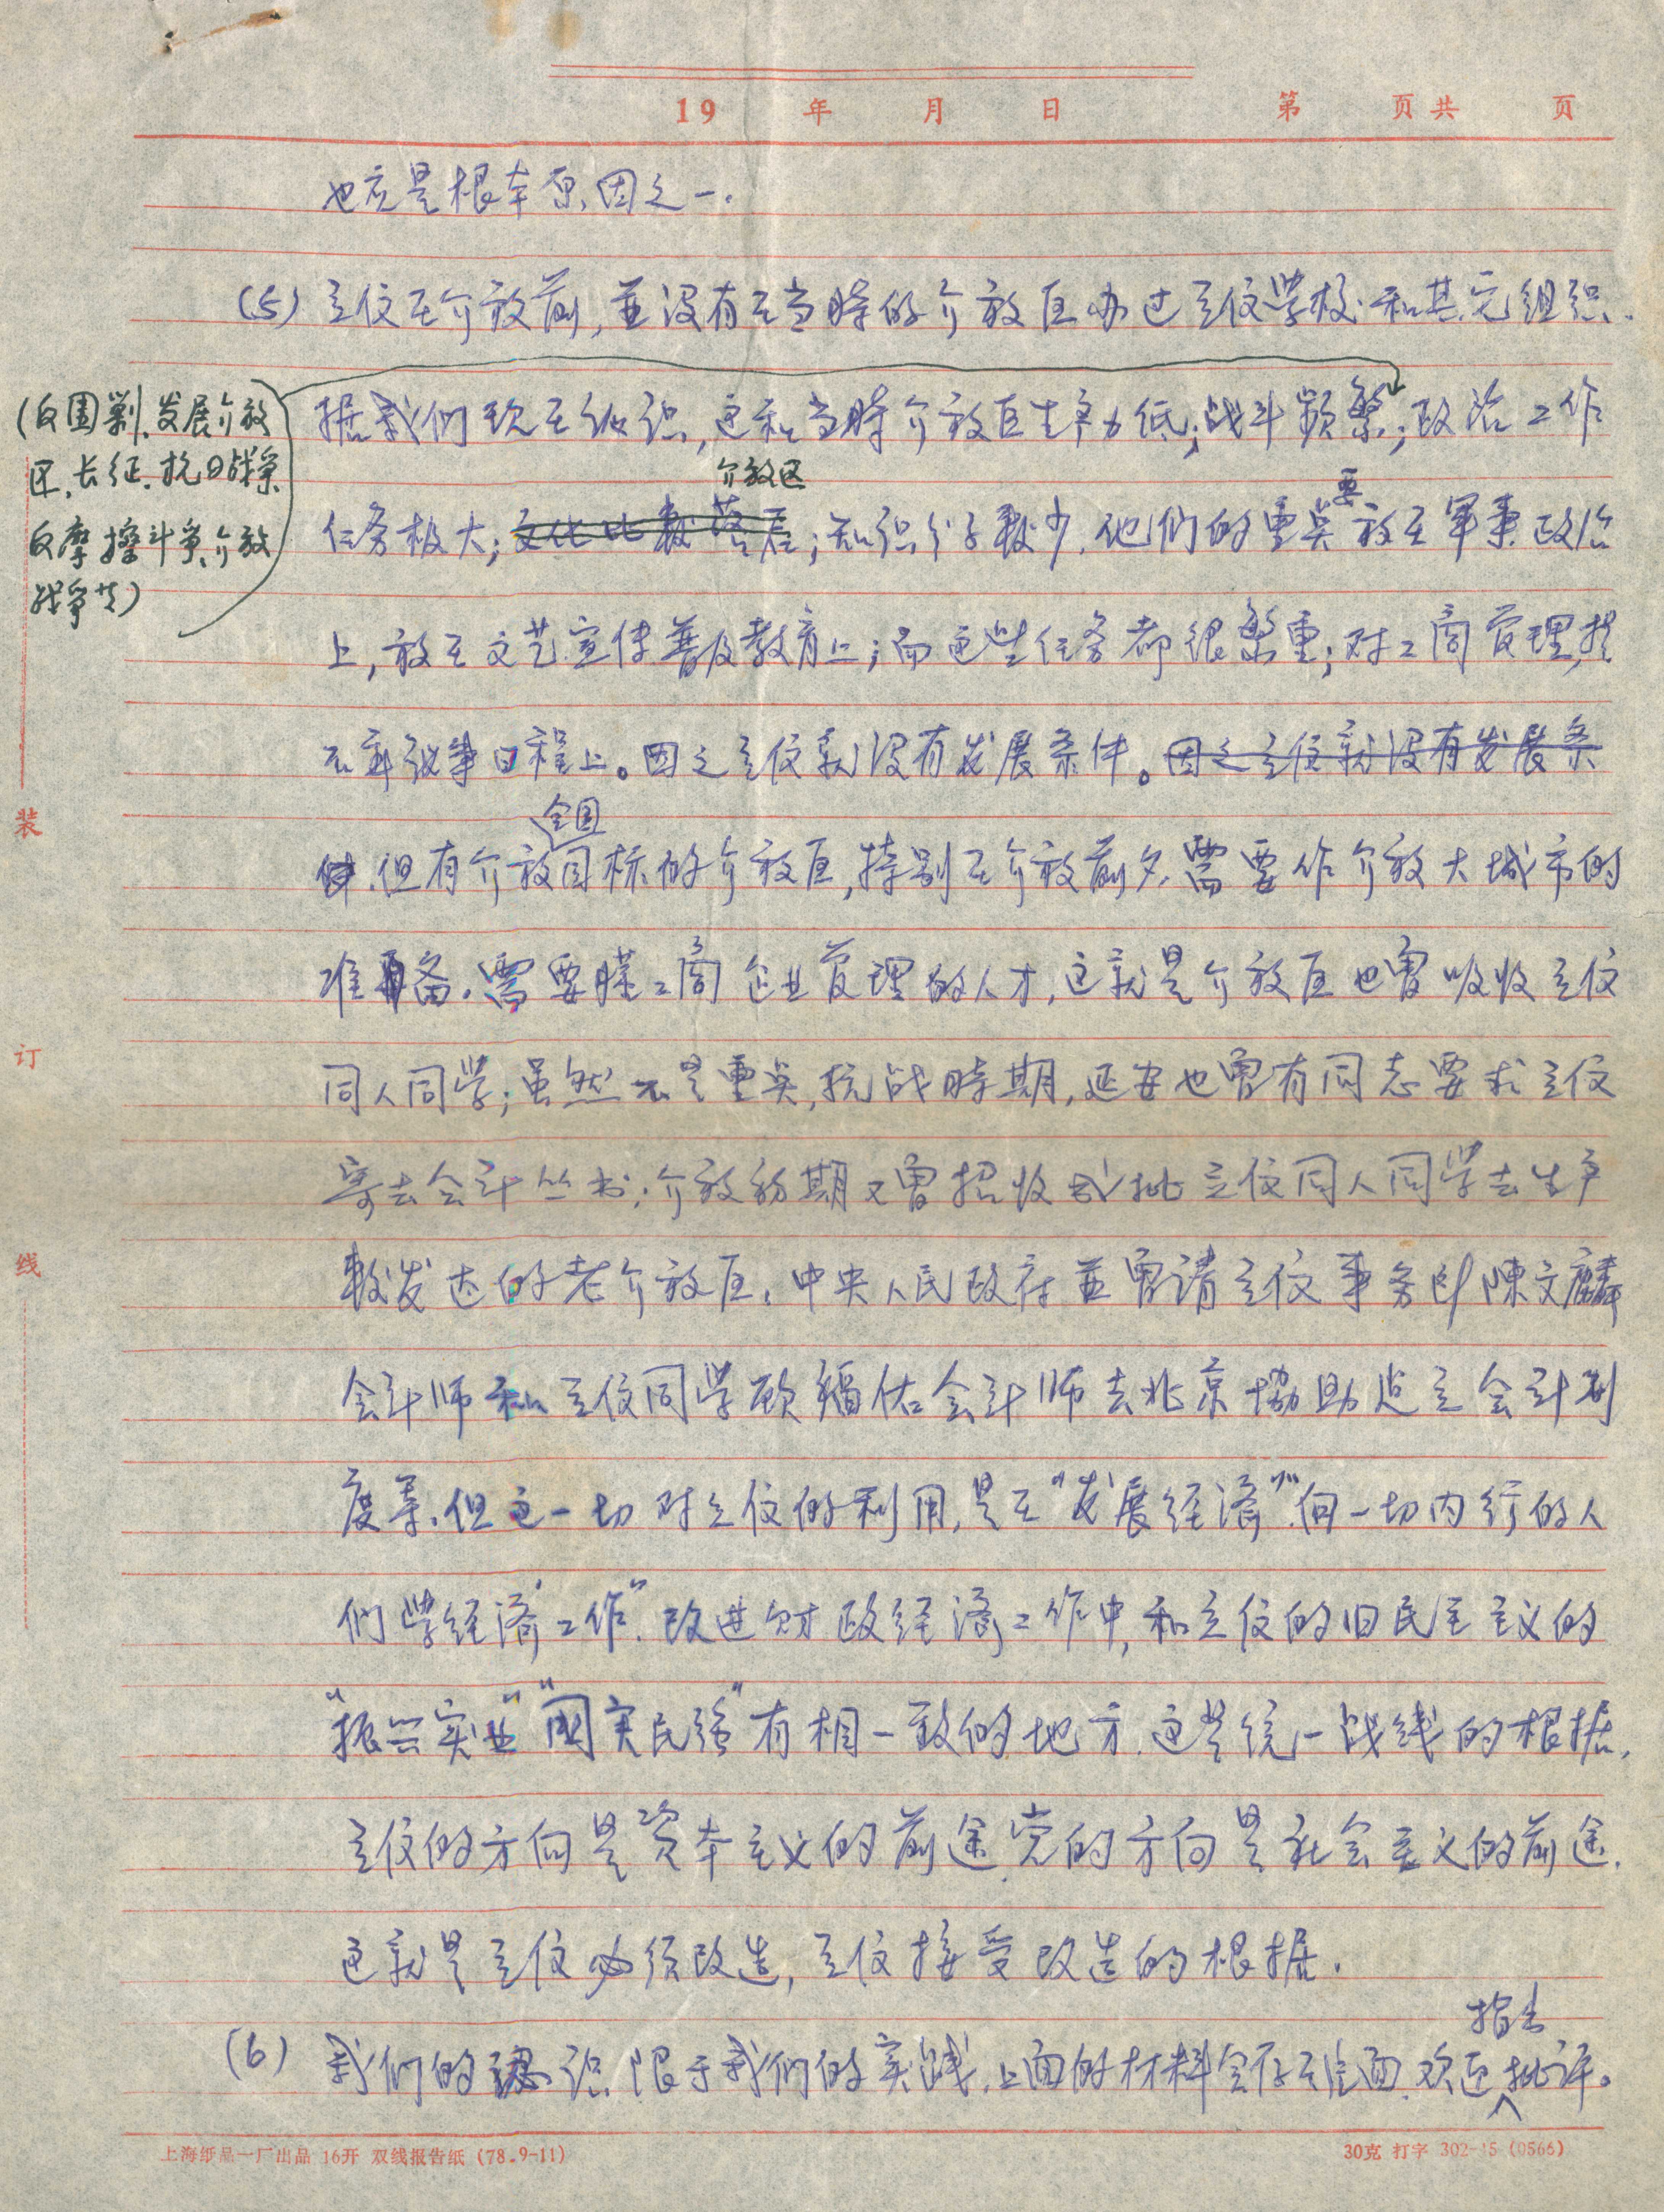 19 年 月 日 第 页共 页
也应是根本原因之一.
(5) 立信在介放前,並没有在当時的介放区办过立信学校和其它组织.
据我们现在知识,这和当時介放区生产力低;战斗频繁;政治工作
(反围剿、发展介放
区、长征、抗日战爭、
反摩擦斗爭、介放
战爭等)
介放区
任务极大;文化比較落后;知识分子較少.他们的重要放在軍事政治
上,放在文艺宣传普及教育上;而这些任务都很繁重;对工商管理,提
不到议事日程上。因之立信就没有发展条件。因之立信就没有发展条
全国
件.但有介放目标的介放区,特别在介放前夕,需要作介放大城市的
准备.需要懂工商企业管理的人才,这就是介放区也曾吸收立信
同人同学;虽然不是重点,抗战時期,延安也曾有同志要求立信
寄去会计丛书;介放初期又曾招收成批立信同人同学去生产
較发达的老介放区.中央人民政府並曾请立信事务所陳文麟
会计师和立信同学顾福佑会计师去北京協助建立会计制
度等.但这一切对立信的利用,是在"发展经濟""向一切内行的人
们学经濟工作".改进财政经濟工作中,和立信的旧民主主义的
"振兴实业""国富民強"有相一致的地方.这是统一战线的根据,
立信的方向是资本主义的前途,党的方向是社会主义的前途.
这就是立信必须改造,立信接受改造的根据.
指出
(6) 我们的認识限于我们的实践.上面的材料会存在片面.欢迎批评。
装
订
线
上海纸品一厂出品 16开 双线报告纸 (78.9-11)
30克 打字 302-15 (0566)